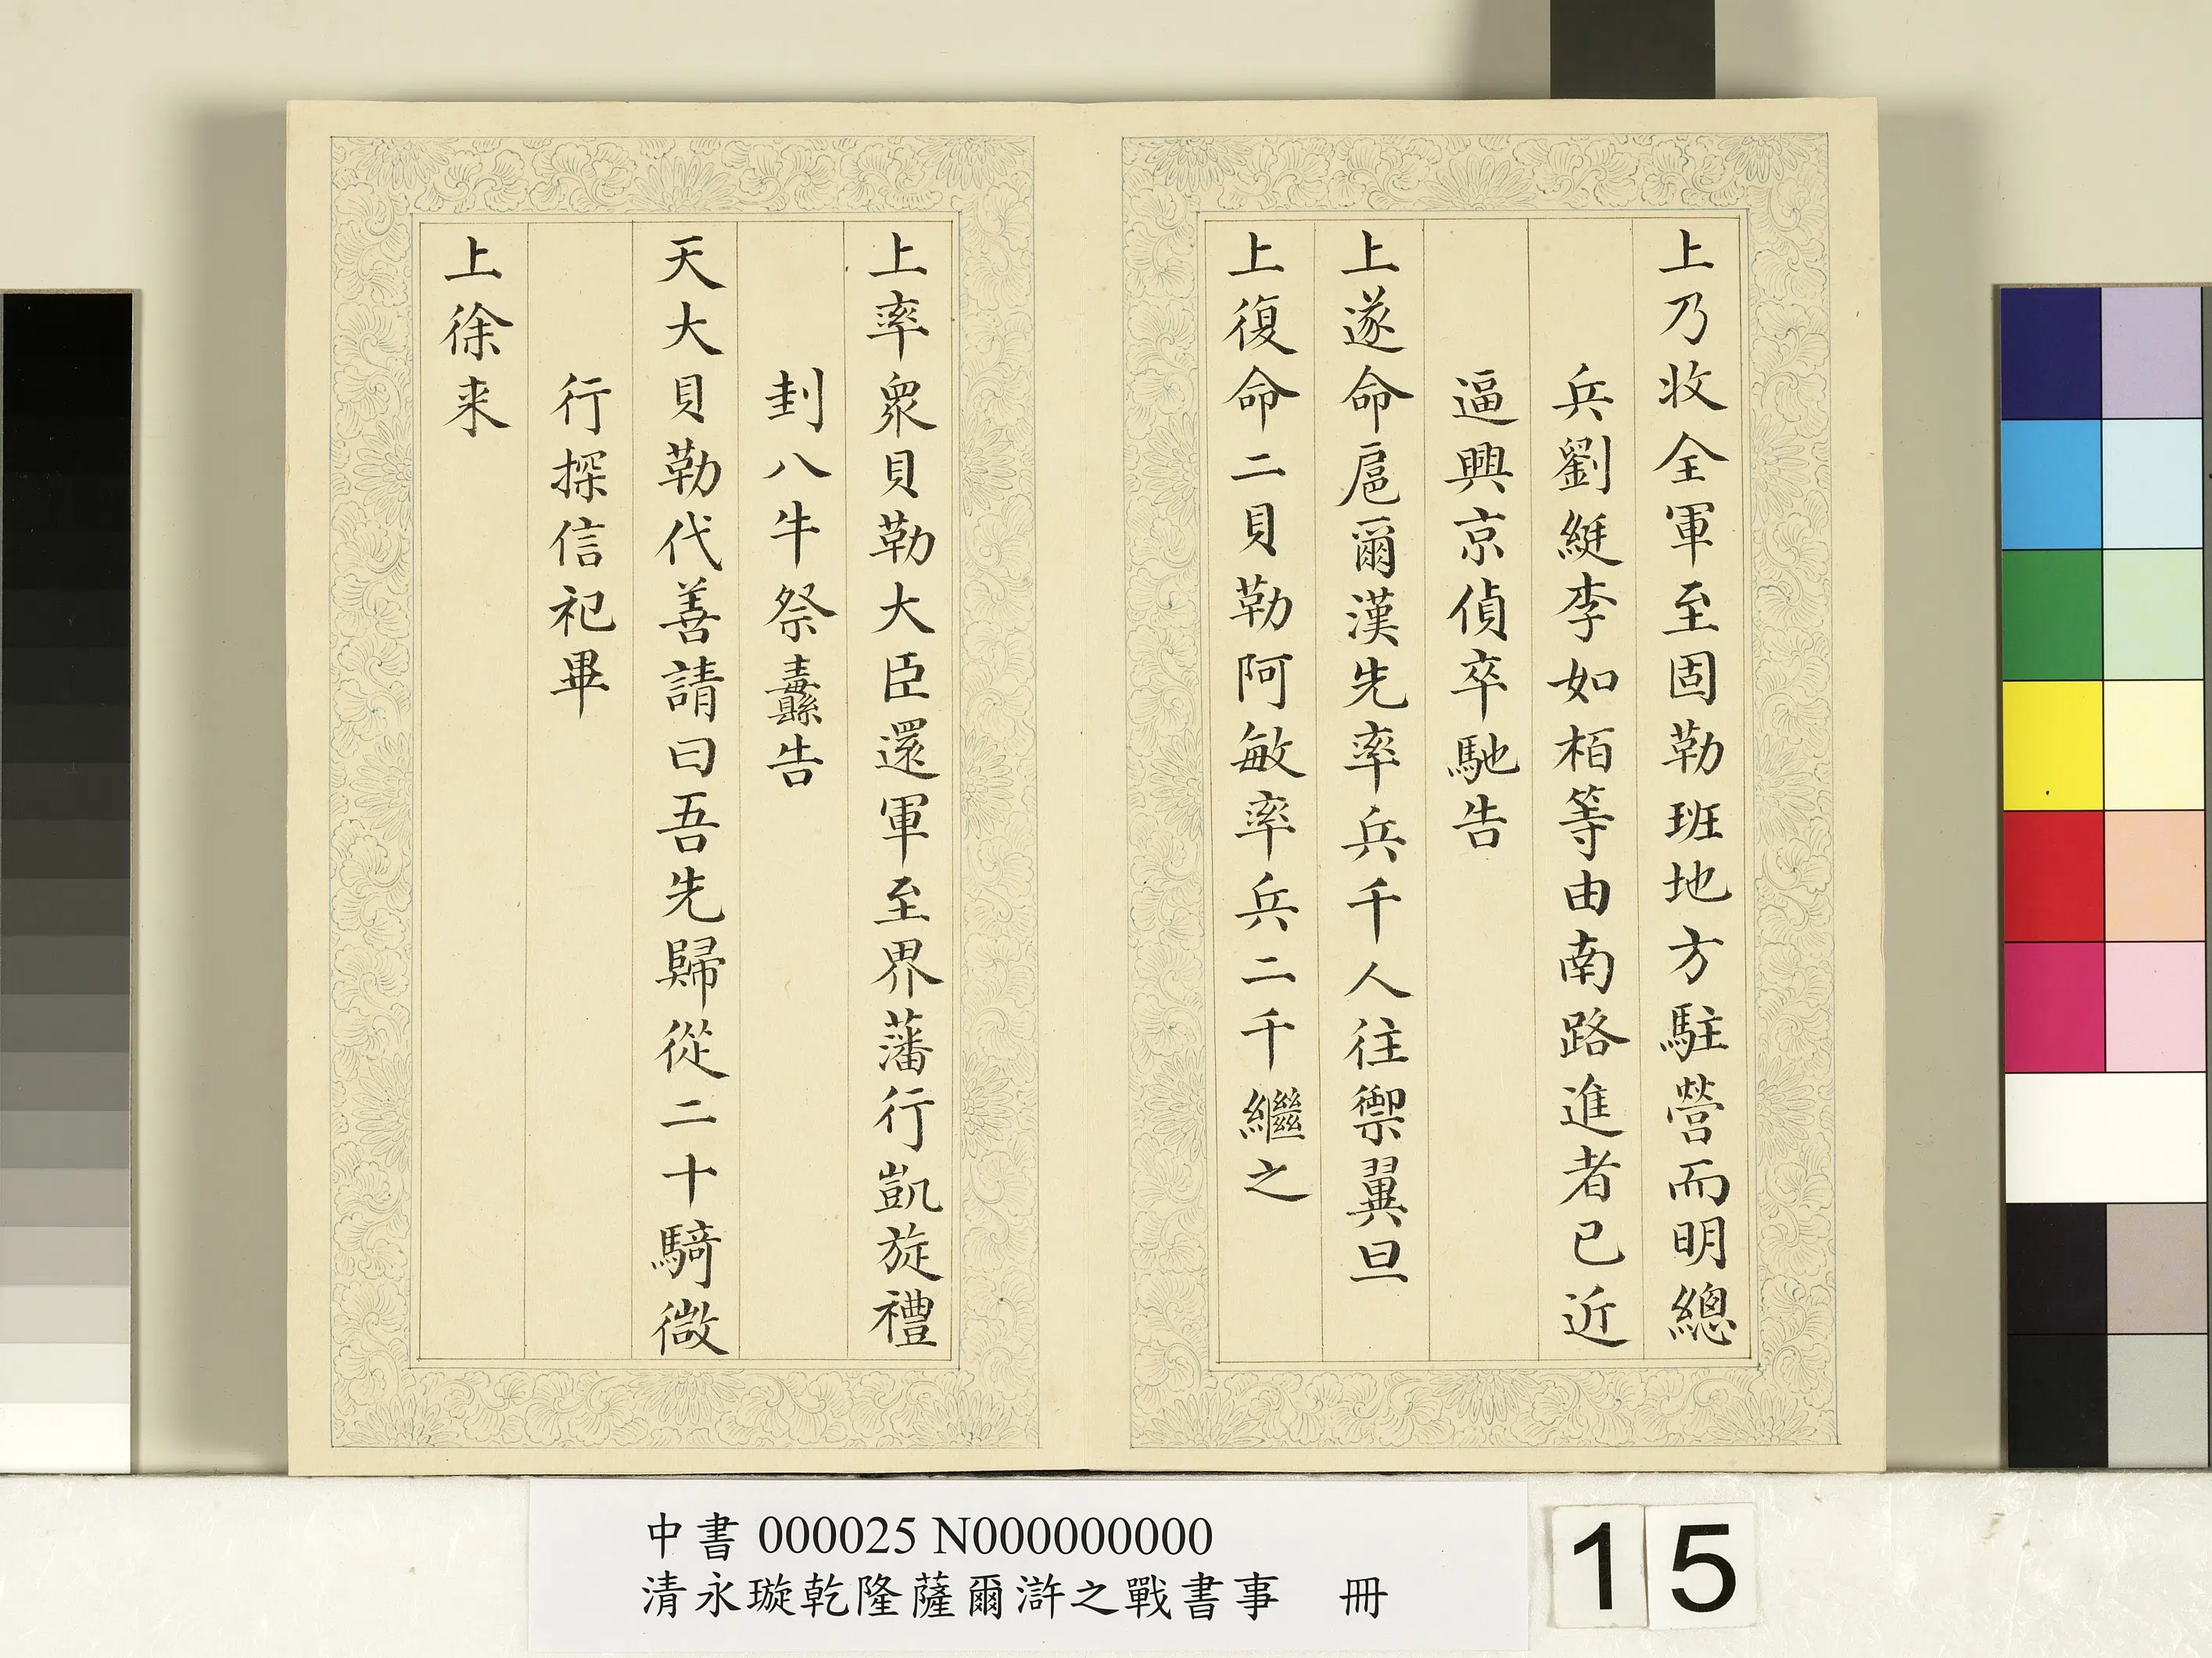 上乃收全軍至固勒班地方駐營而明總
兵劉綎李如栢等由南路進者已近
逼興京偵卒馳告
上遂命扈爾漢先率兵千人往禦翼旦
上復命二貝勒阿敏率兵二千繼之
上率衆貝勒大臣還軍至界藩行凱旋禮
刲八牛祭纛告
天大貝勒代善請曰吾先歸從二十騎微
行探信祀畢
上徐来
中書 000025 N000000000
清永璇乾隆薩爾滸之戰書事 冊
15